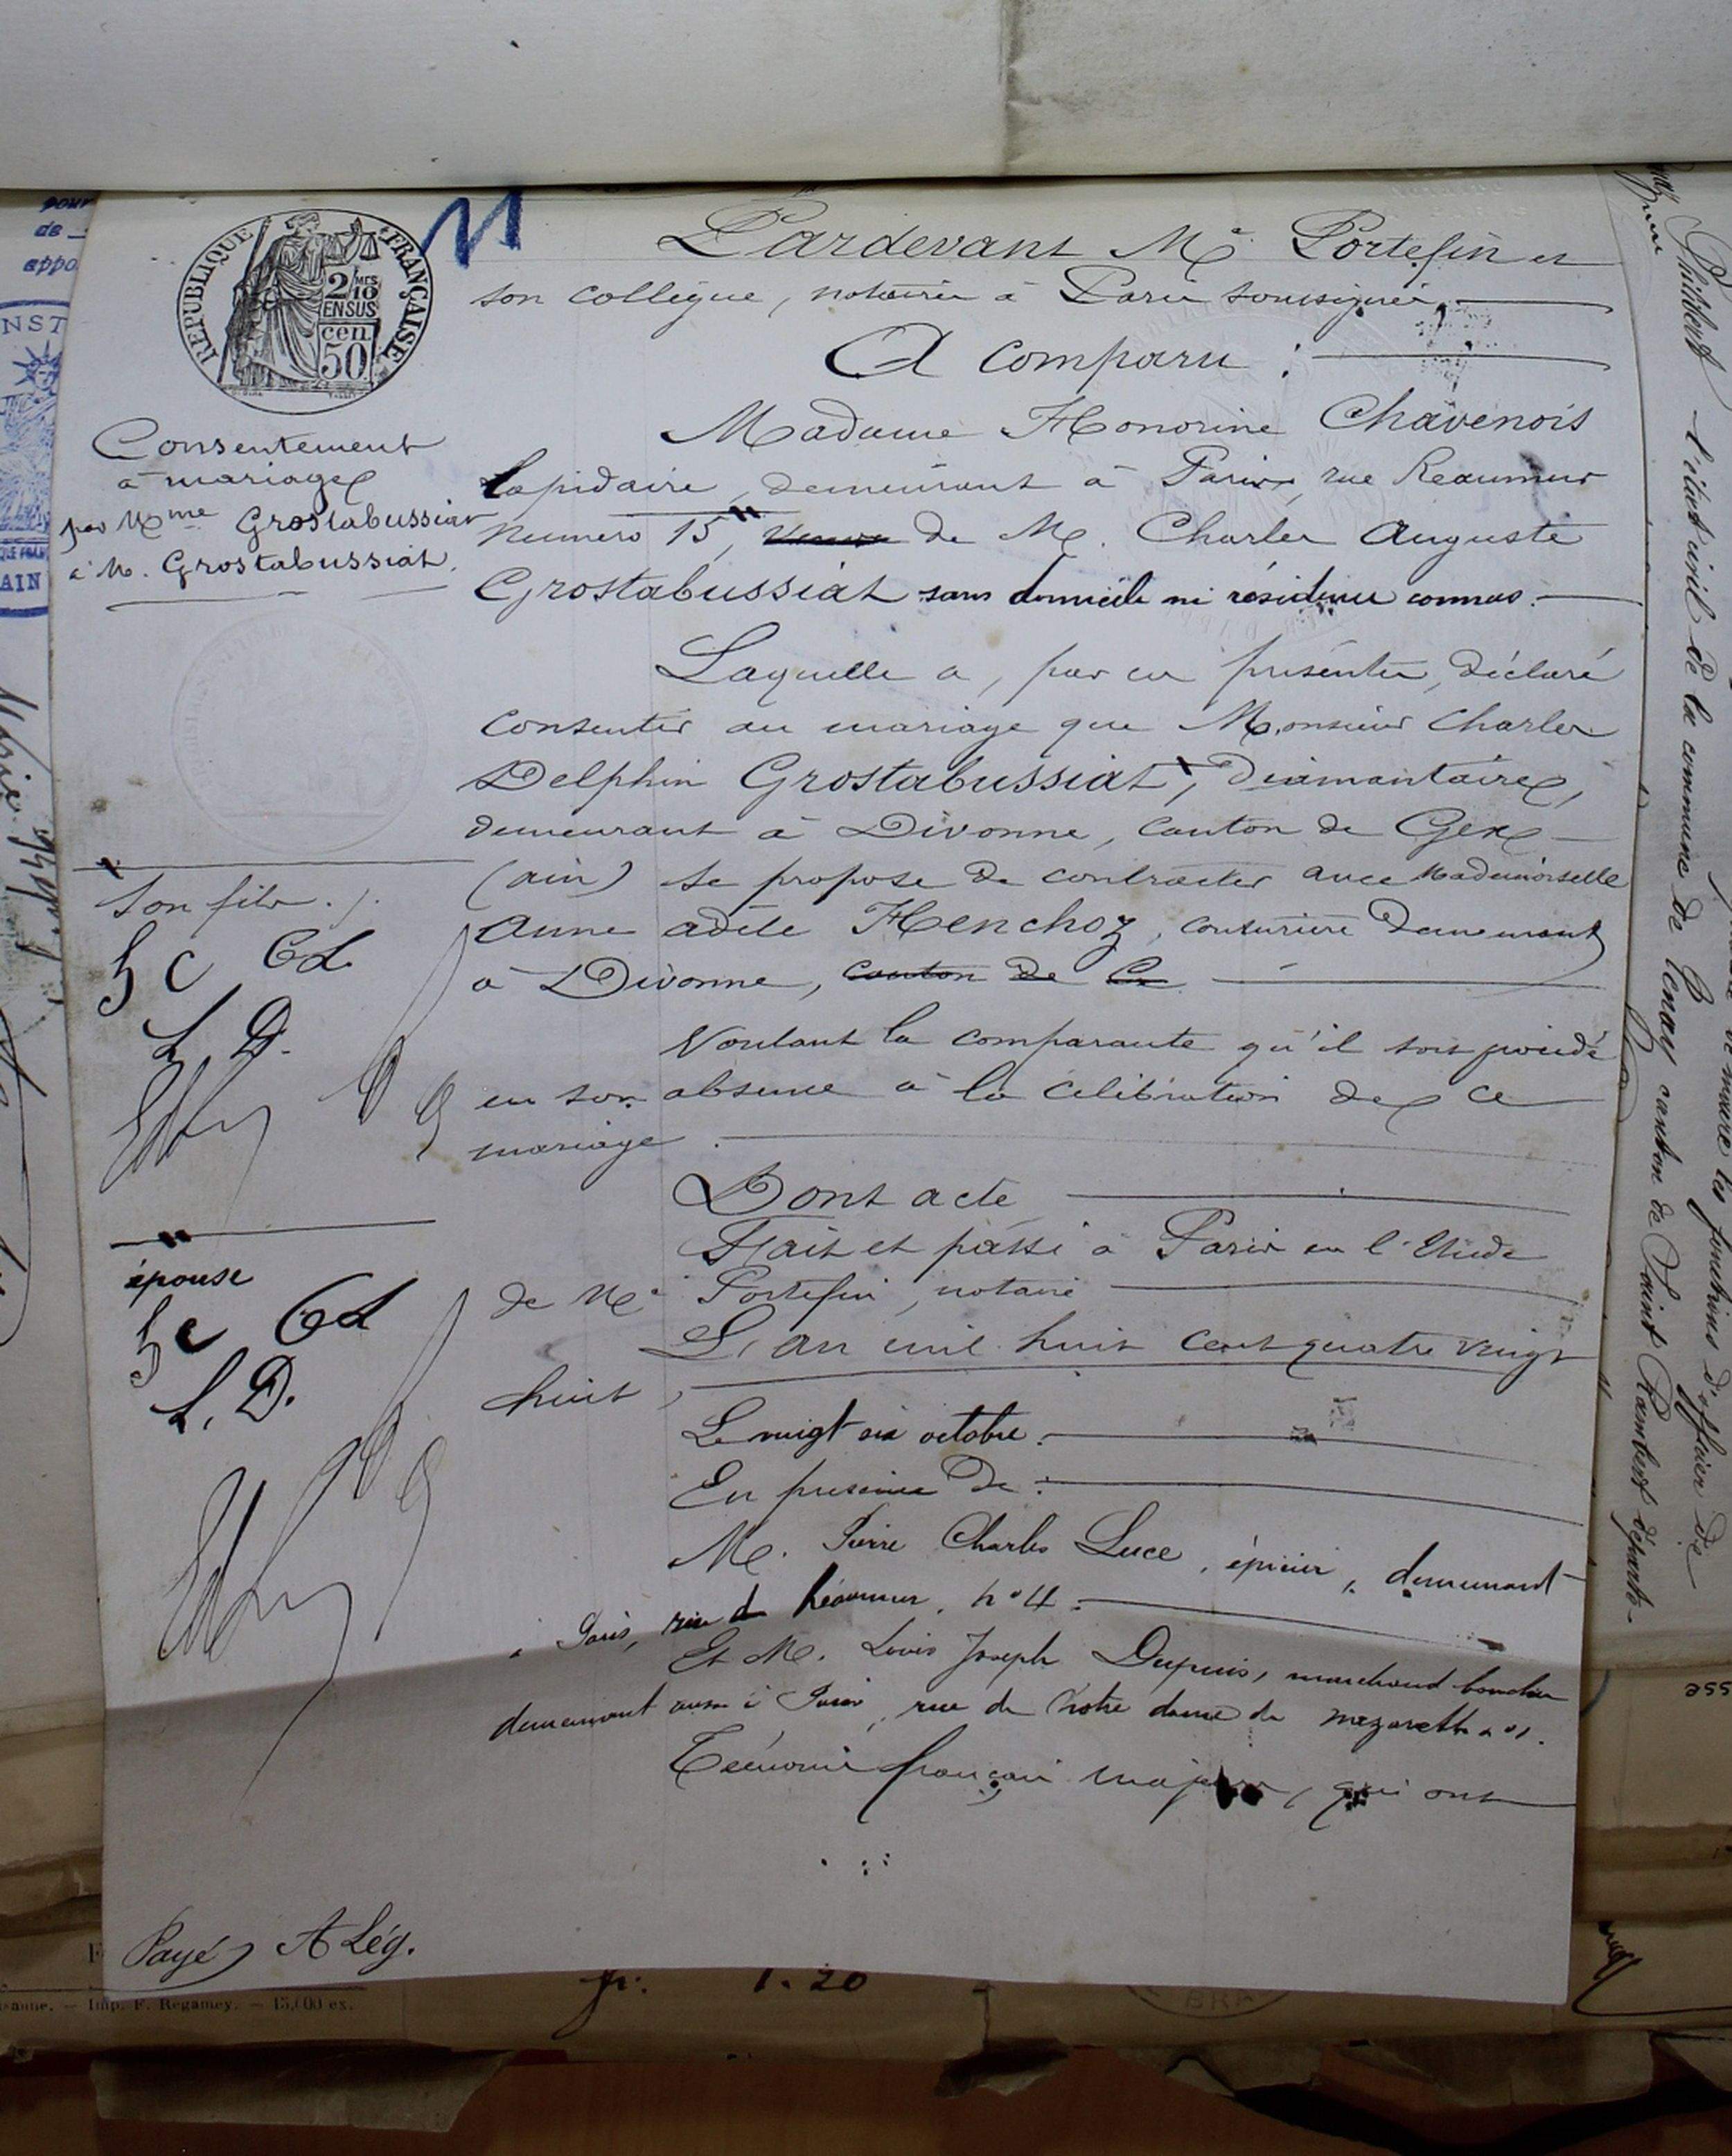 pour
de
appo
NST
AIN
11
REPUBLIQUE FRANÇAISE
2/10 MES
EN SUS
cen
50
Consentement
à mariage
par Mme Grostabussiat
à M. Grostabussiat.
Pardevant Me Portefin et
son collègue, notaires à Paris soussignés,
A comparu :
Madame Honorine Chavenois
Lapidaire, demeurant à Paris, rue Reaumur
numero 15, veuve de M. Charles Auguste
Grostabussiat sans domicile ni résidence connus.
Laquelle a, par ces présentes, déclaré
consentir au mariage que Monsieur Charles
Delphin Grostabussiat, Diamantaire,
demeurant à Divonne, canton de Gex
(ain) se propose de contracter avec Mademoiselle
Anne adèle Henchoz, couturière demeurant
à Divonne, canton de
Voulant la comparante qu'il soit procédé
en son absence à la célébration de ce
mariage.
Dont acte
Fait et passé à Paris en l'Etude
de Me Portefin, notaire
L'an mil huit cent quatre vingt
huit,
Le vingt six octobre.
En présence de :
M. Pierre Charles Luce, épicier, demeurant
à Paris, rue de Réaumur, no 4.
Et M. Louis Joseph Dupuis, marchand boucher
demeurant aussi à Paris, rue de Notre dame de Nazareth no 1.
Témoins français majeurs, qui ont
son fils.
h c Cd
L D.
épouse
h c Cd
L. D.
Payé A Lég.
fr. 1.20
Imp. F. Regamey. — 15,000 ex.
BRA
Philibert
l'état civil de la commune de Tenay canton de Saint Rambert départe-
de maire les fonctions d'officier de